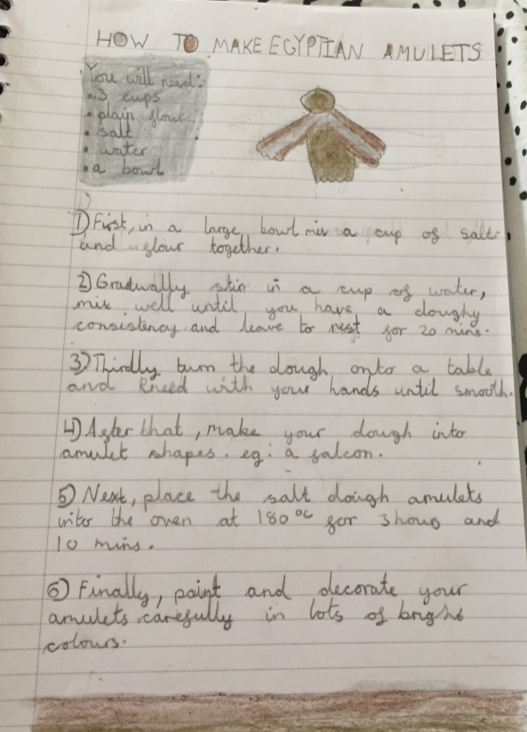 HOW TO MAKE EGYPTIAN AMULETS
You will need:
• 3 cups
• plain flour
• salt
• water
• a bowl
1) First, in a large bowl mix a cup of salt
and flour together.
2) Gradually stir in a cup of water,
mix well until you have a doughy
consistency and leave to rest for 20 mins.
3) Thirdly turn the dough onto a table
and kneed with your hands until smooth.
4) After that, make your dough into
amulet shapes. eg: a falcon.
5) Next, place the salt dough amulets
into the oven at 180°c for 3 hours and
10 mins.
6) Finally, paint and decorate your
amulets carefully in lots of bright
colours.